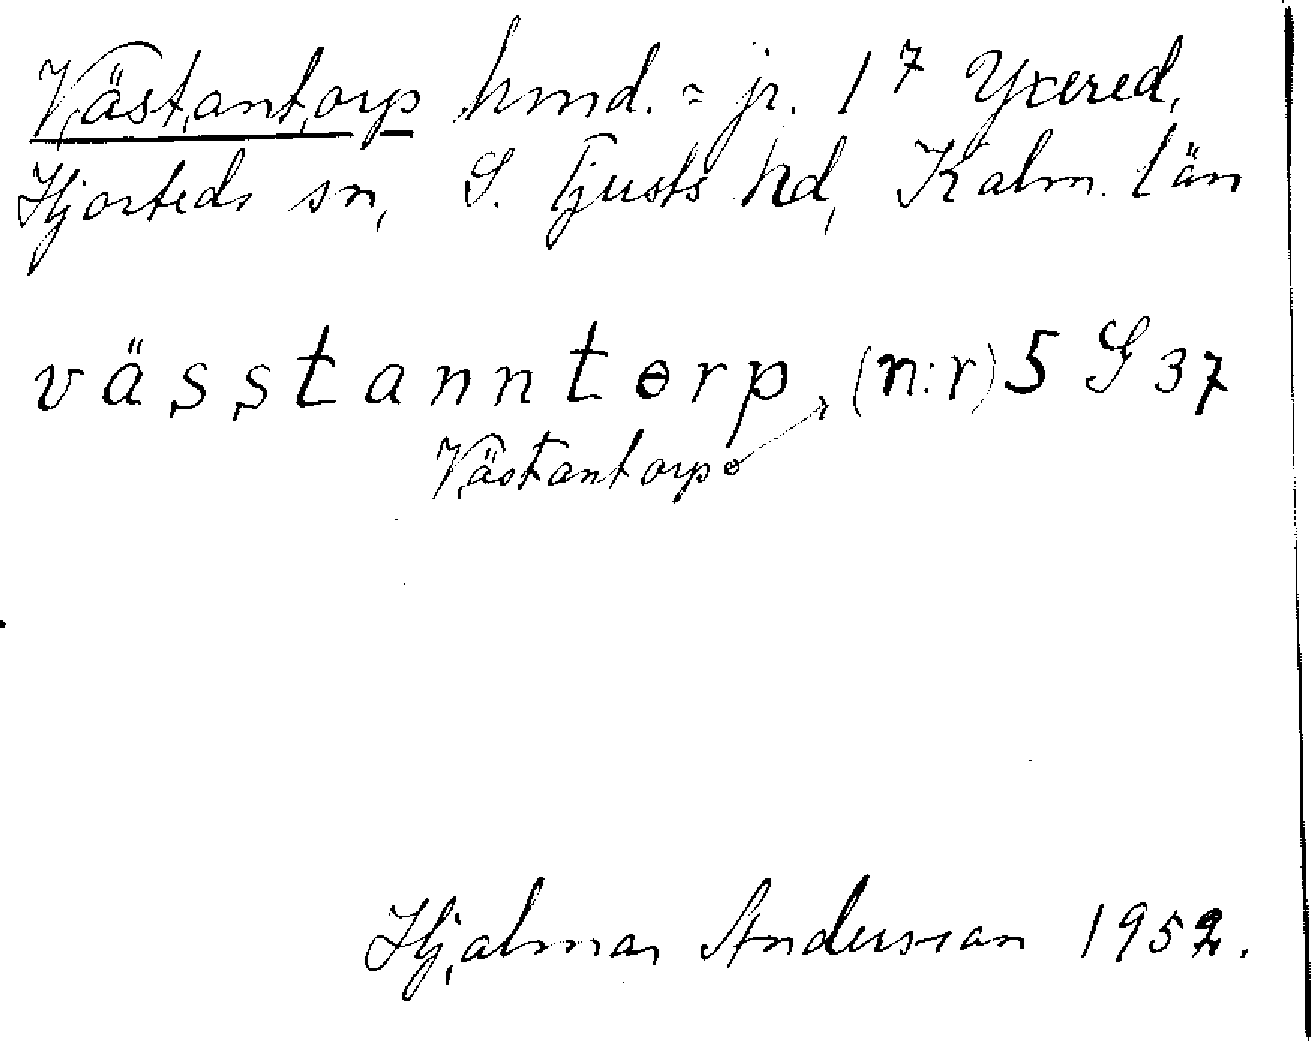 Västantorp hmd. = jr. 1⁷ Yxered,
Hjorteds sn, S. Tjusts hd, Kalm. län
vässtanntorp, (n:r) 5 G 37
Västantorp
Hjalmar Andersson 1952.